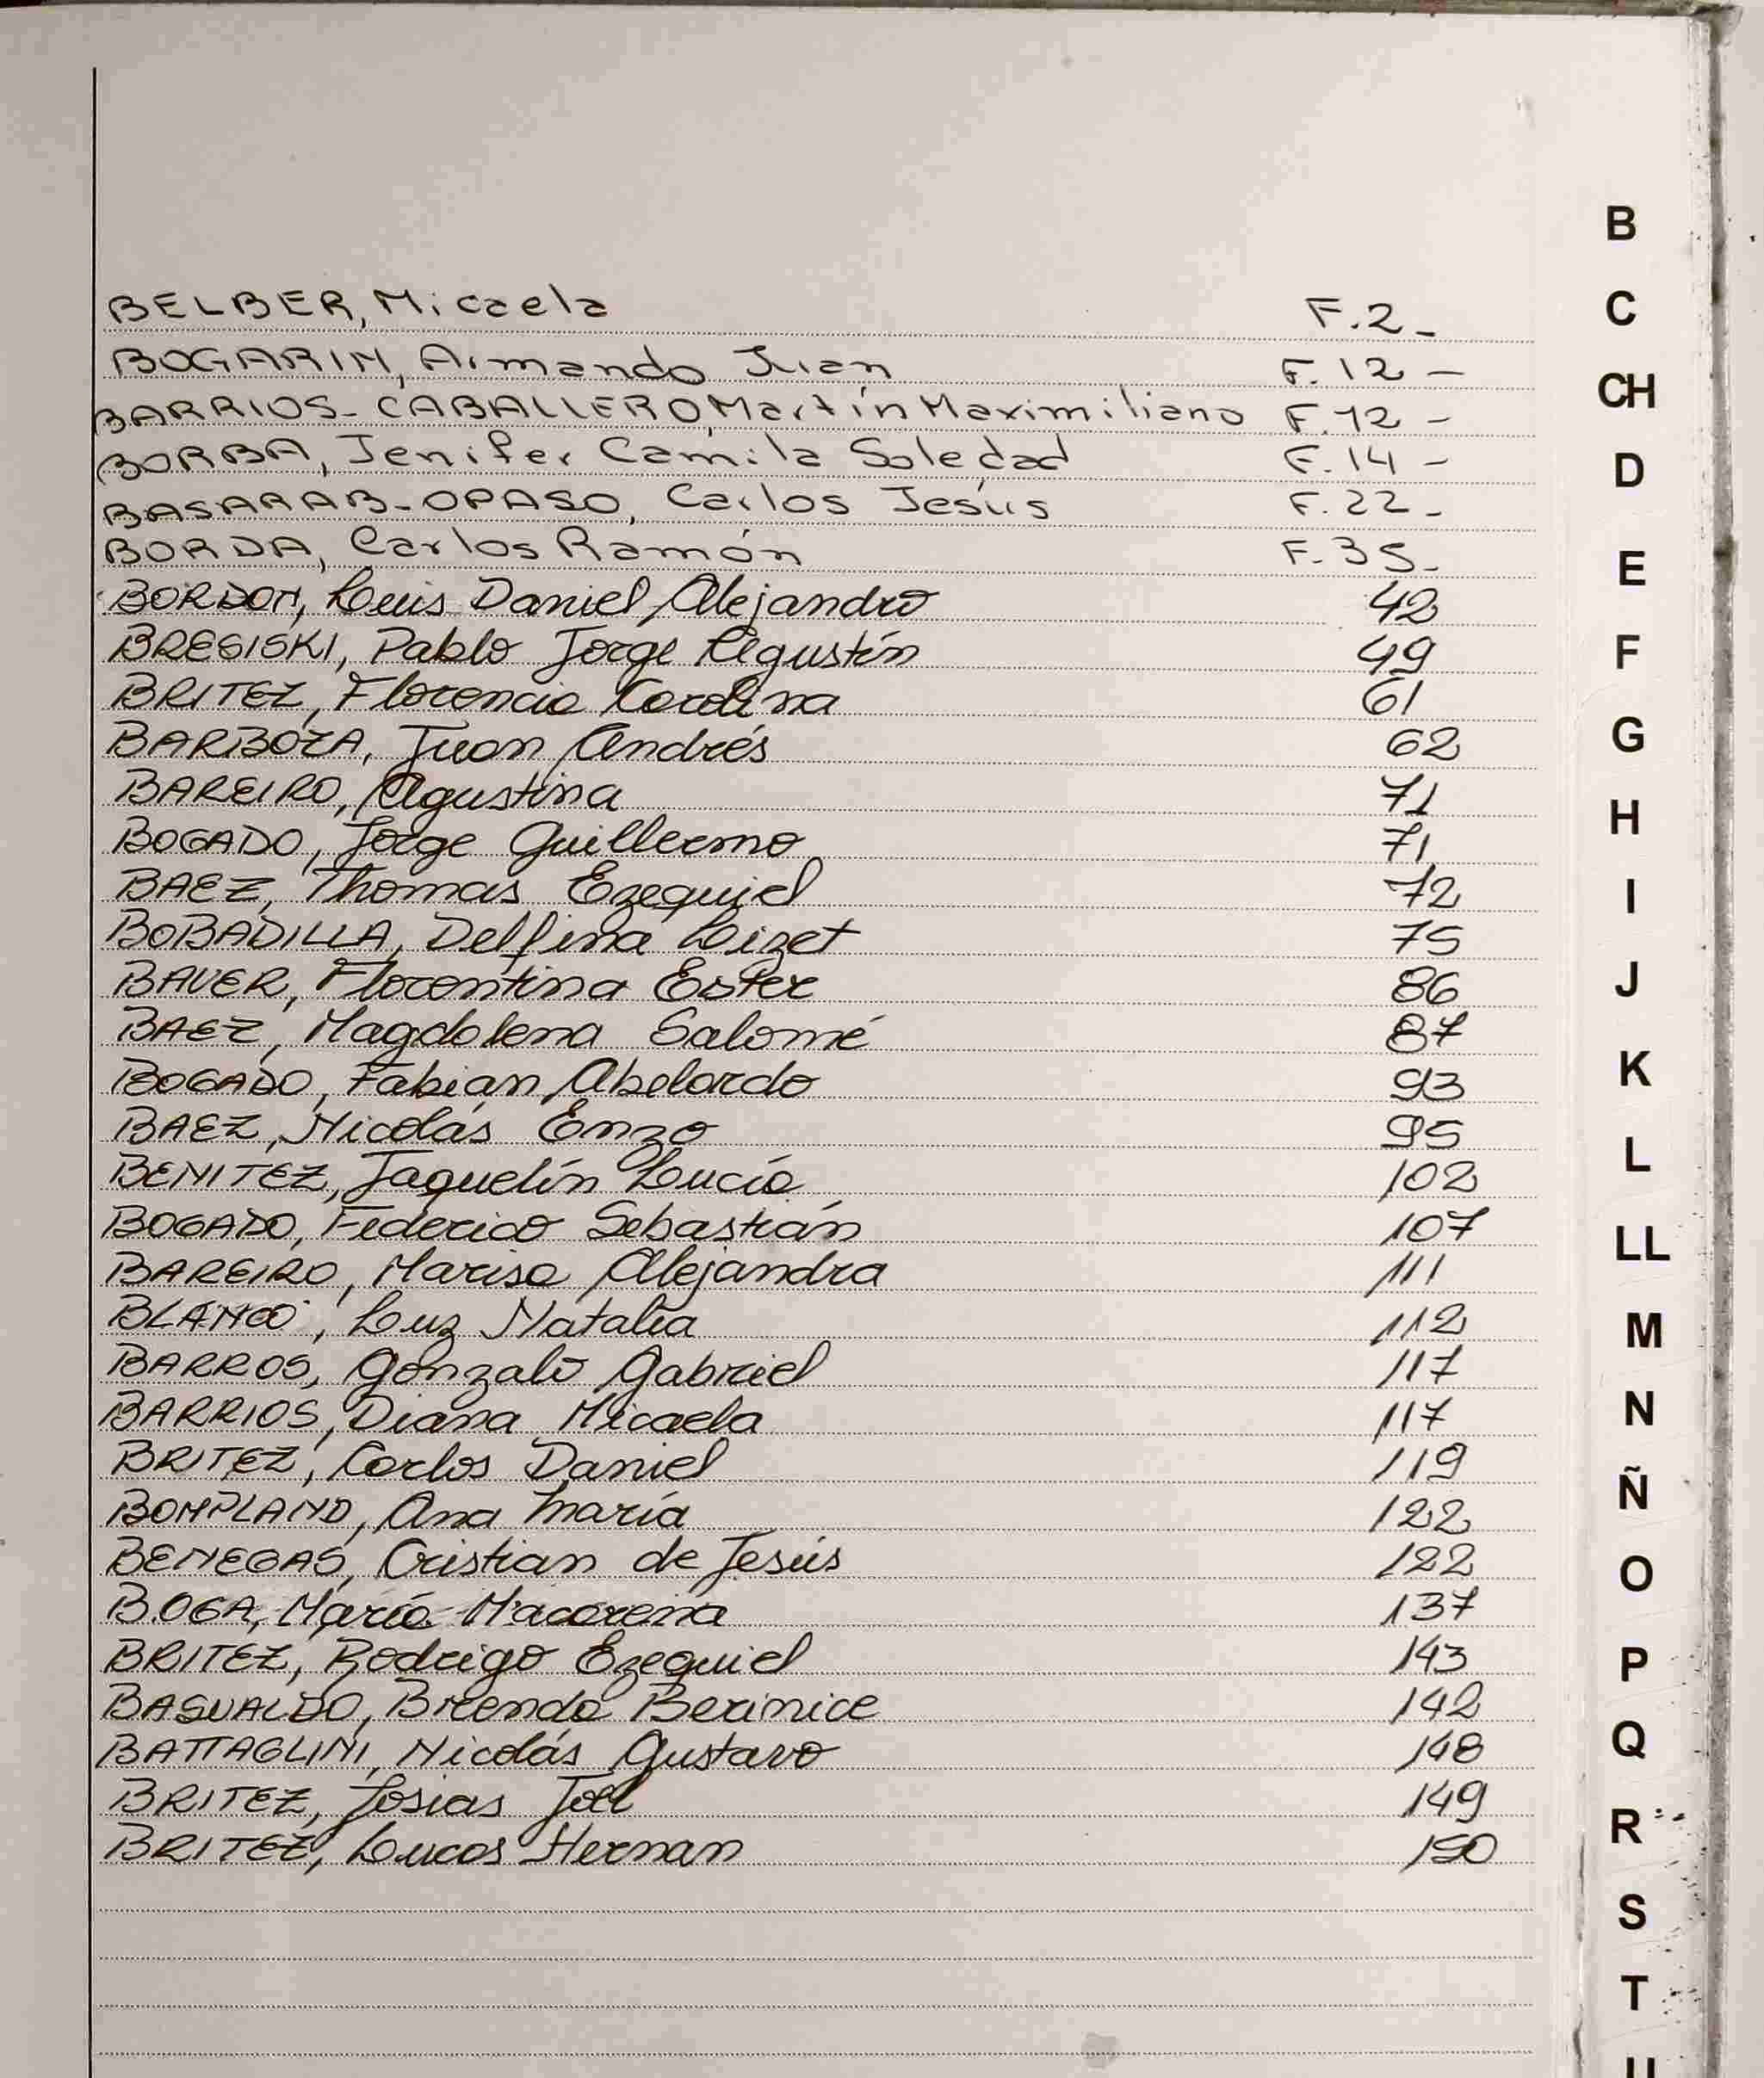 BELBER, Micaela F.2-
BOGARIN, Armando Juan F.12-
BARRIOS-CABALLERO, Martín Maximiliano F.12-
BORBA, Jenifer Camila Soledad F.14-
BASARAB-OPASO, Carlos Jesús F.22-
BORDA, Carlos Ramón F.35-
BORDON, Luis Daniel Alejandro 42
BRESISKI, Pablo Jorge Agustín 49
BRITEZ, Florencia Carolina 61
BARBOZA, Juan Andrés 62
BAREIRO, Agustina 71
BOGADO, Jorge Guillermo 71
BAEZ, Thomas Ezequiel 72
BOBADILLA, Delfina Lizet 75
BAUER, Florentina Ester 86
BAEZ, Magdalena Salomé 87
BOGADO, Fabian Abelardo 93
BAEZ, Nicolás Enzo 95
BENITEZ, Jaquelín Lucía 102
BOGADO, Federico Sebastián 107
BAREIRO, Marisa Alejandra 111
BLANCO, Luz Natalia 112
BARROS, Gonzalo Gabriel 117
BARRIOS, Diana Micaela 117
BRITEZ, Carlos Daniel 119
BOMPLAND, Ana María 122
BENEGAS, Cristian de Jesús 122
BOGA, María Macarena 137
BRITEZ, Rodrigo Ezequiel 143
BASUALDO, Brenda Berinice 142
BATTAGLINI, Nicolás Gustavo 148
BRITEZ, Josias Joel 149
BRITEZ, Lucas Hernan 150
B
C
CH
D
E
F
G
H
I
J
K
L
LL
M
N
Ñ
O
P
Q
R
S
T